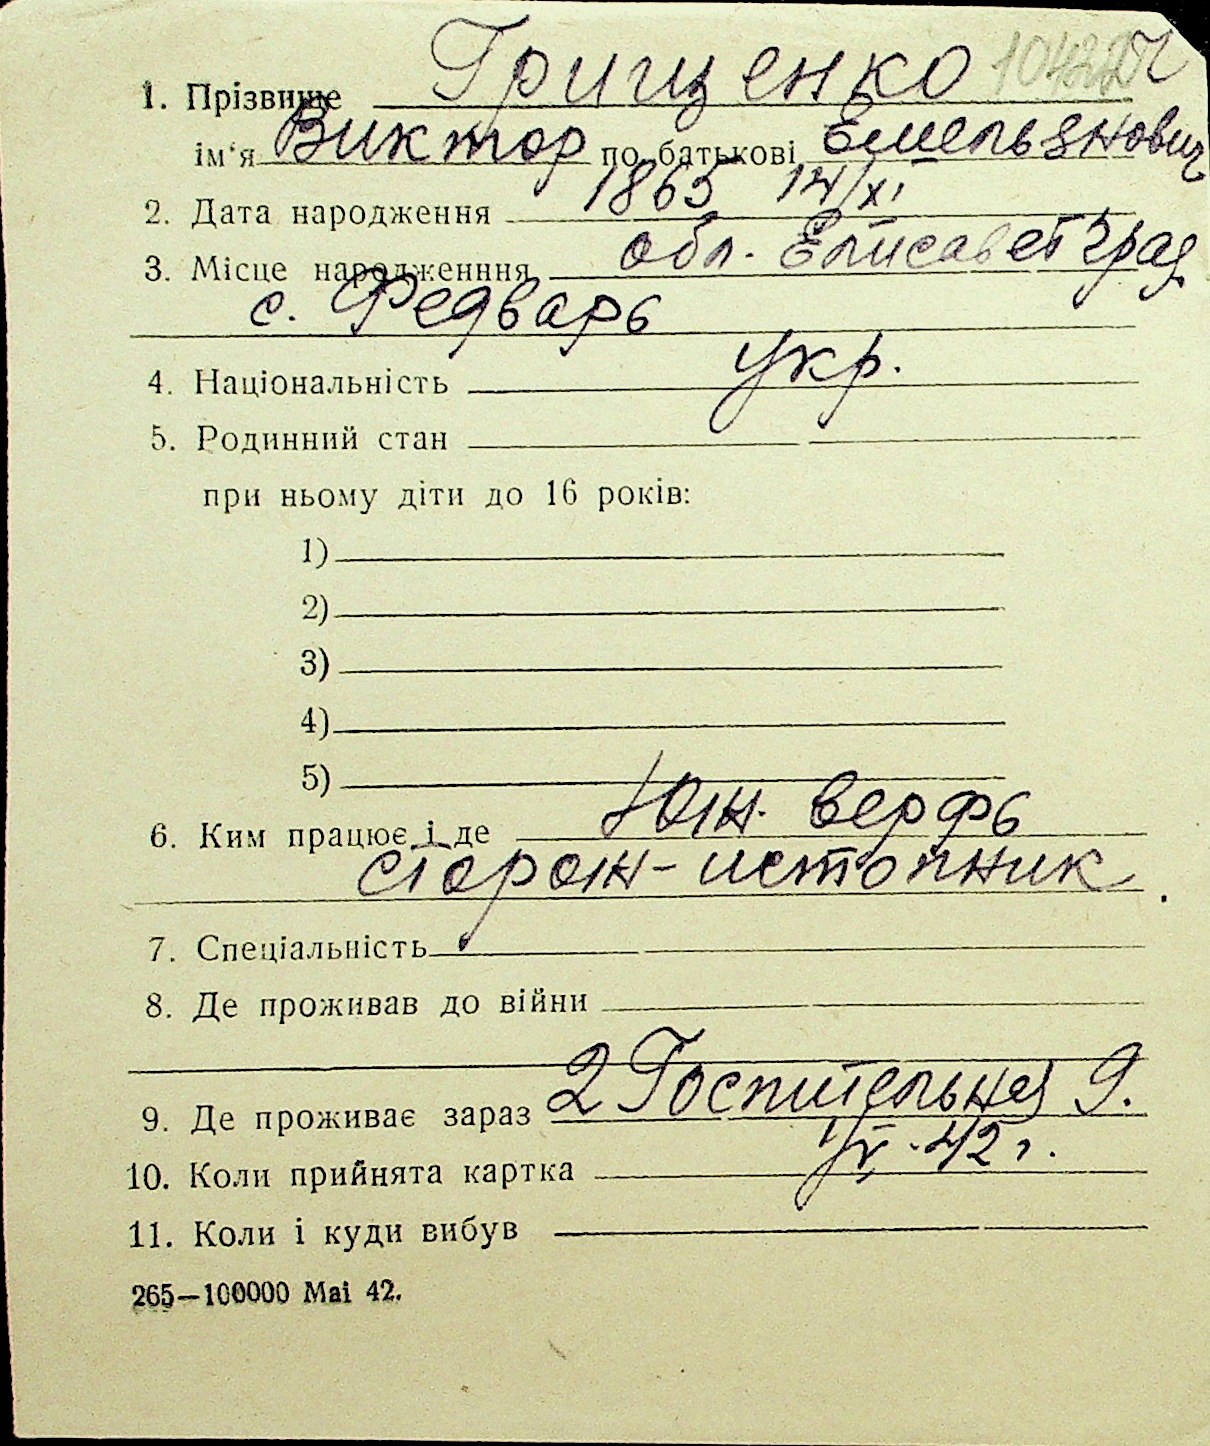 1. Прізвище Грищенко
ім‘я Виктор по батькові Емельянович
2. Дата народження 1865 14/XI
3. Місце народженння обл. Елисаветград
с. Федварь
4. Національність Укр.
5. Родинний стан
при ньому діти до 16 років:
1)
2)
3)
4)
5)
6. Ким працює і де Южн. верфь
сторож-истопник
7. Спеціальність
8. Де проживав до війни
9. Де проживає зараз 2 Госпительная 9.
10. Коли прийнята картка 42 г.
11. Коли і куди вибув
265—100000 Mai 42.